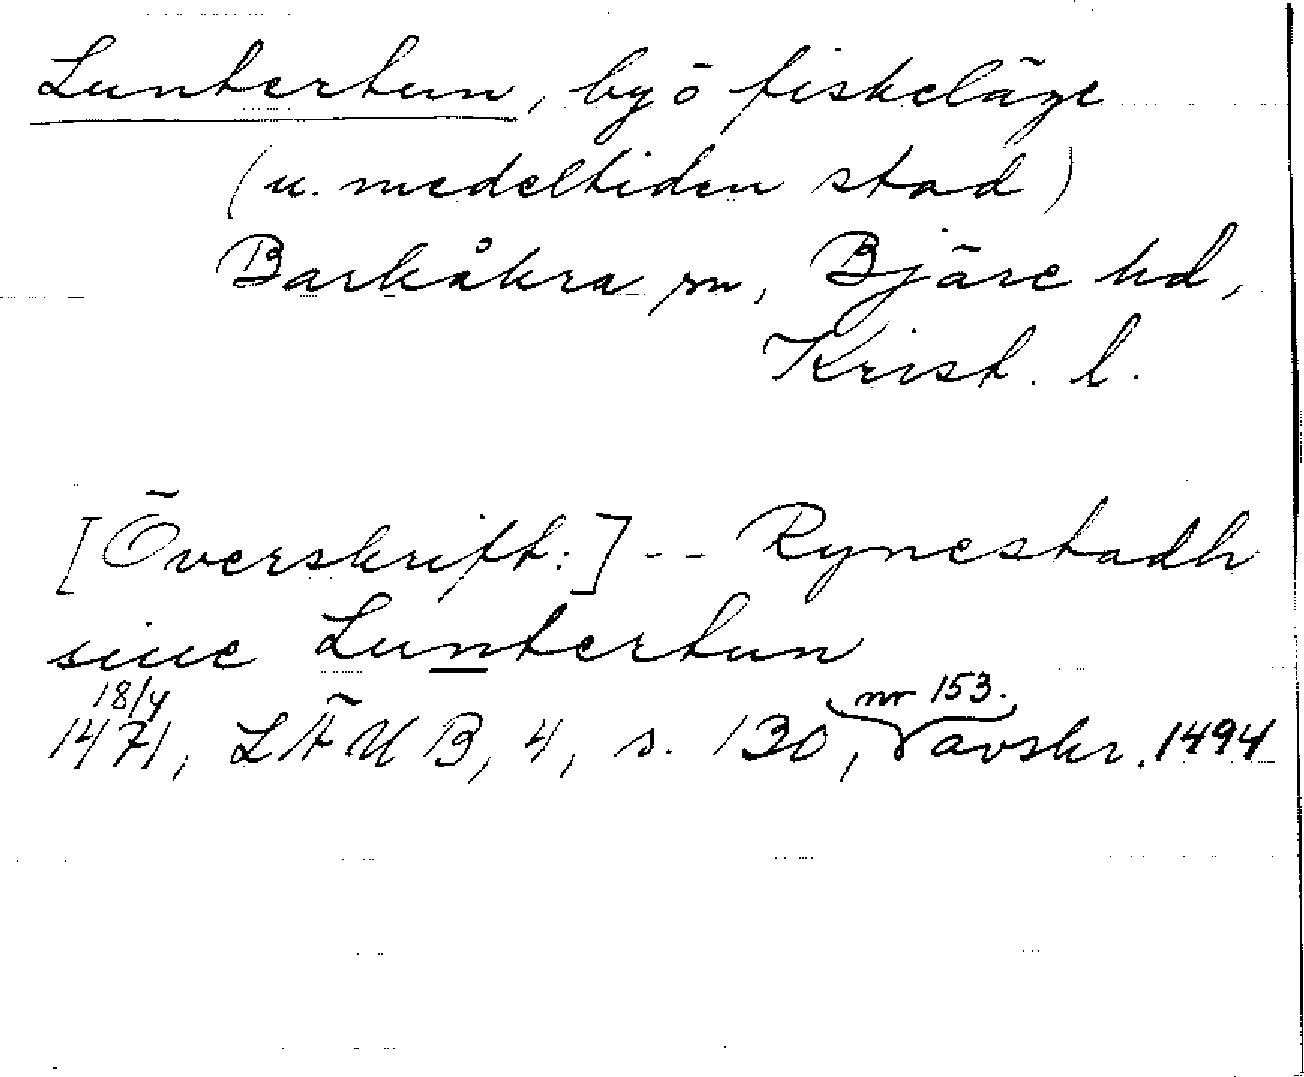 Luntertun, by o fiskeläge
(u. medeltiden stad)
Barkåkra sn, Bjäre hd,
Krist. l.
[Överskrift:] -- Rynestadh
siue Luntertun
18/4 nr 153.
1471, LÄUB, 4, s. 130, avskr. 1494